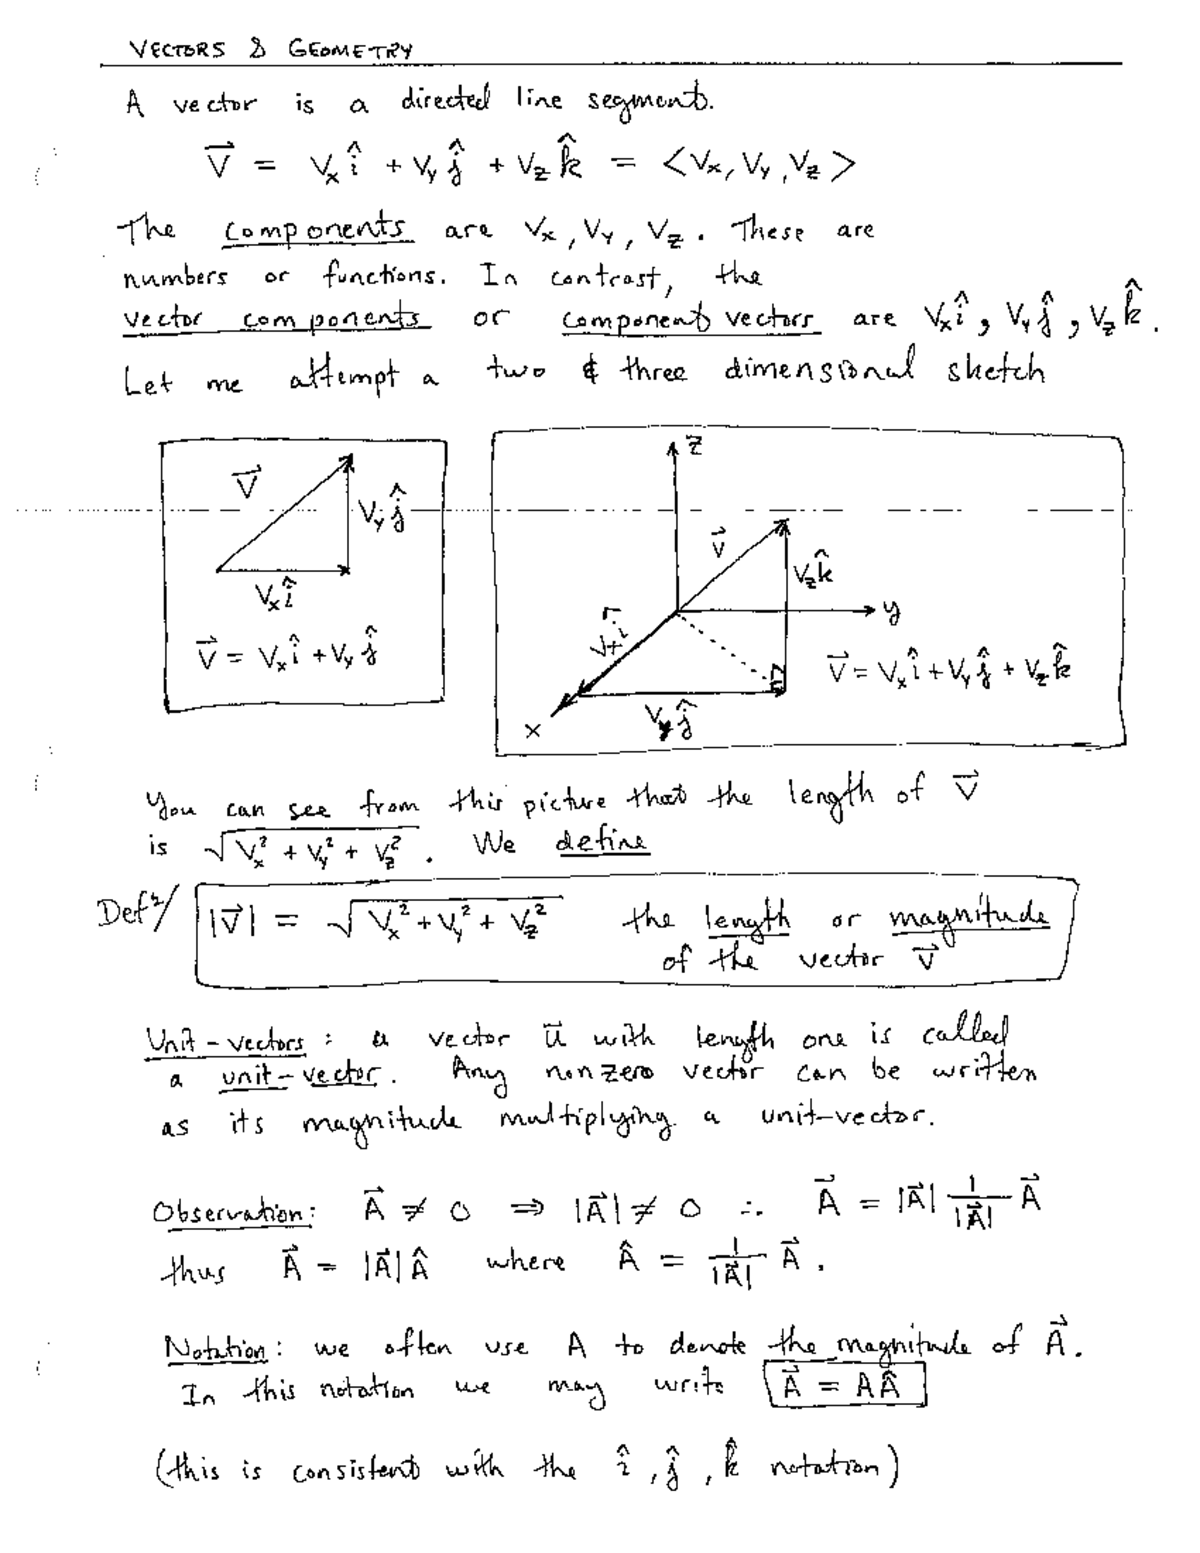 VECTORS & GEOMETRY
A vector is a directed line segment.
V⃗ = Vₓ î + Vᵧ ĵ + V_z k̂ = <Vₓ, Vᵧ, V_z>
The components are Vₓ, Vᵧ, V_z. These are
numbers or functions. In contrast, the
vector components or component vectors are Vₓ î, Vᵧ ĵ, V_z k̂.
Let me attempt a two & three dimensional sketch
V⃗
Vᵧ ĵ
Vₓ î
V⃗ = Vₓ î + Vᵧ ĵ
z
V⃗
V_z k̂
y
Vₓ î
V⃗ = Vₓ î + Vᵧ ĵ + V_z k̂
Vᵧ ĵ
x
You can see from this picture that the length of V⃗
is √(Vₓ² + Vᵧ² + V_z²). We define
Defⁿ/ |V⃗| = √(Vₓ² + Vᵧ² + V_z²) the length or magnitude
of the vector V⃗
Unit-vectors: a vector u⃗ with length one is called
a unit-vector. Any nonzero vector can be written
as its magnitude multiplying a unit-vector.
Observation: A⃗ ≠ 0 ⇒ |A⃗| ≠ 0 ∴ A⃗ = |A⃗| 1/|A⃗| A⃗
thus A⃗ = |A⃗| Â where Â = 1/|A⃗| A⃗.
Notation: we often use A to denote the magnitude of A⃗.
In this notation we may write A⃗ = AÂ
(this is consistent with the î, ĵ, k̂ notation)